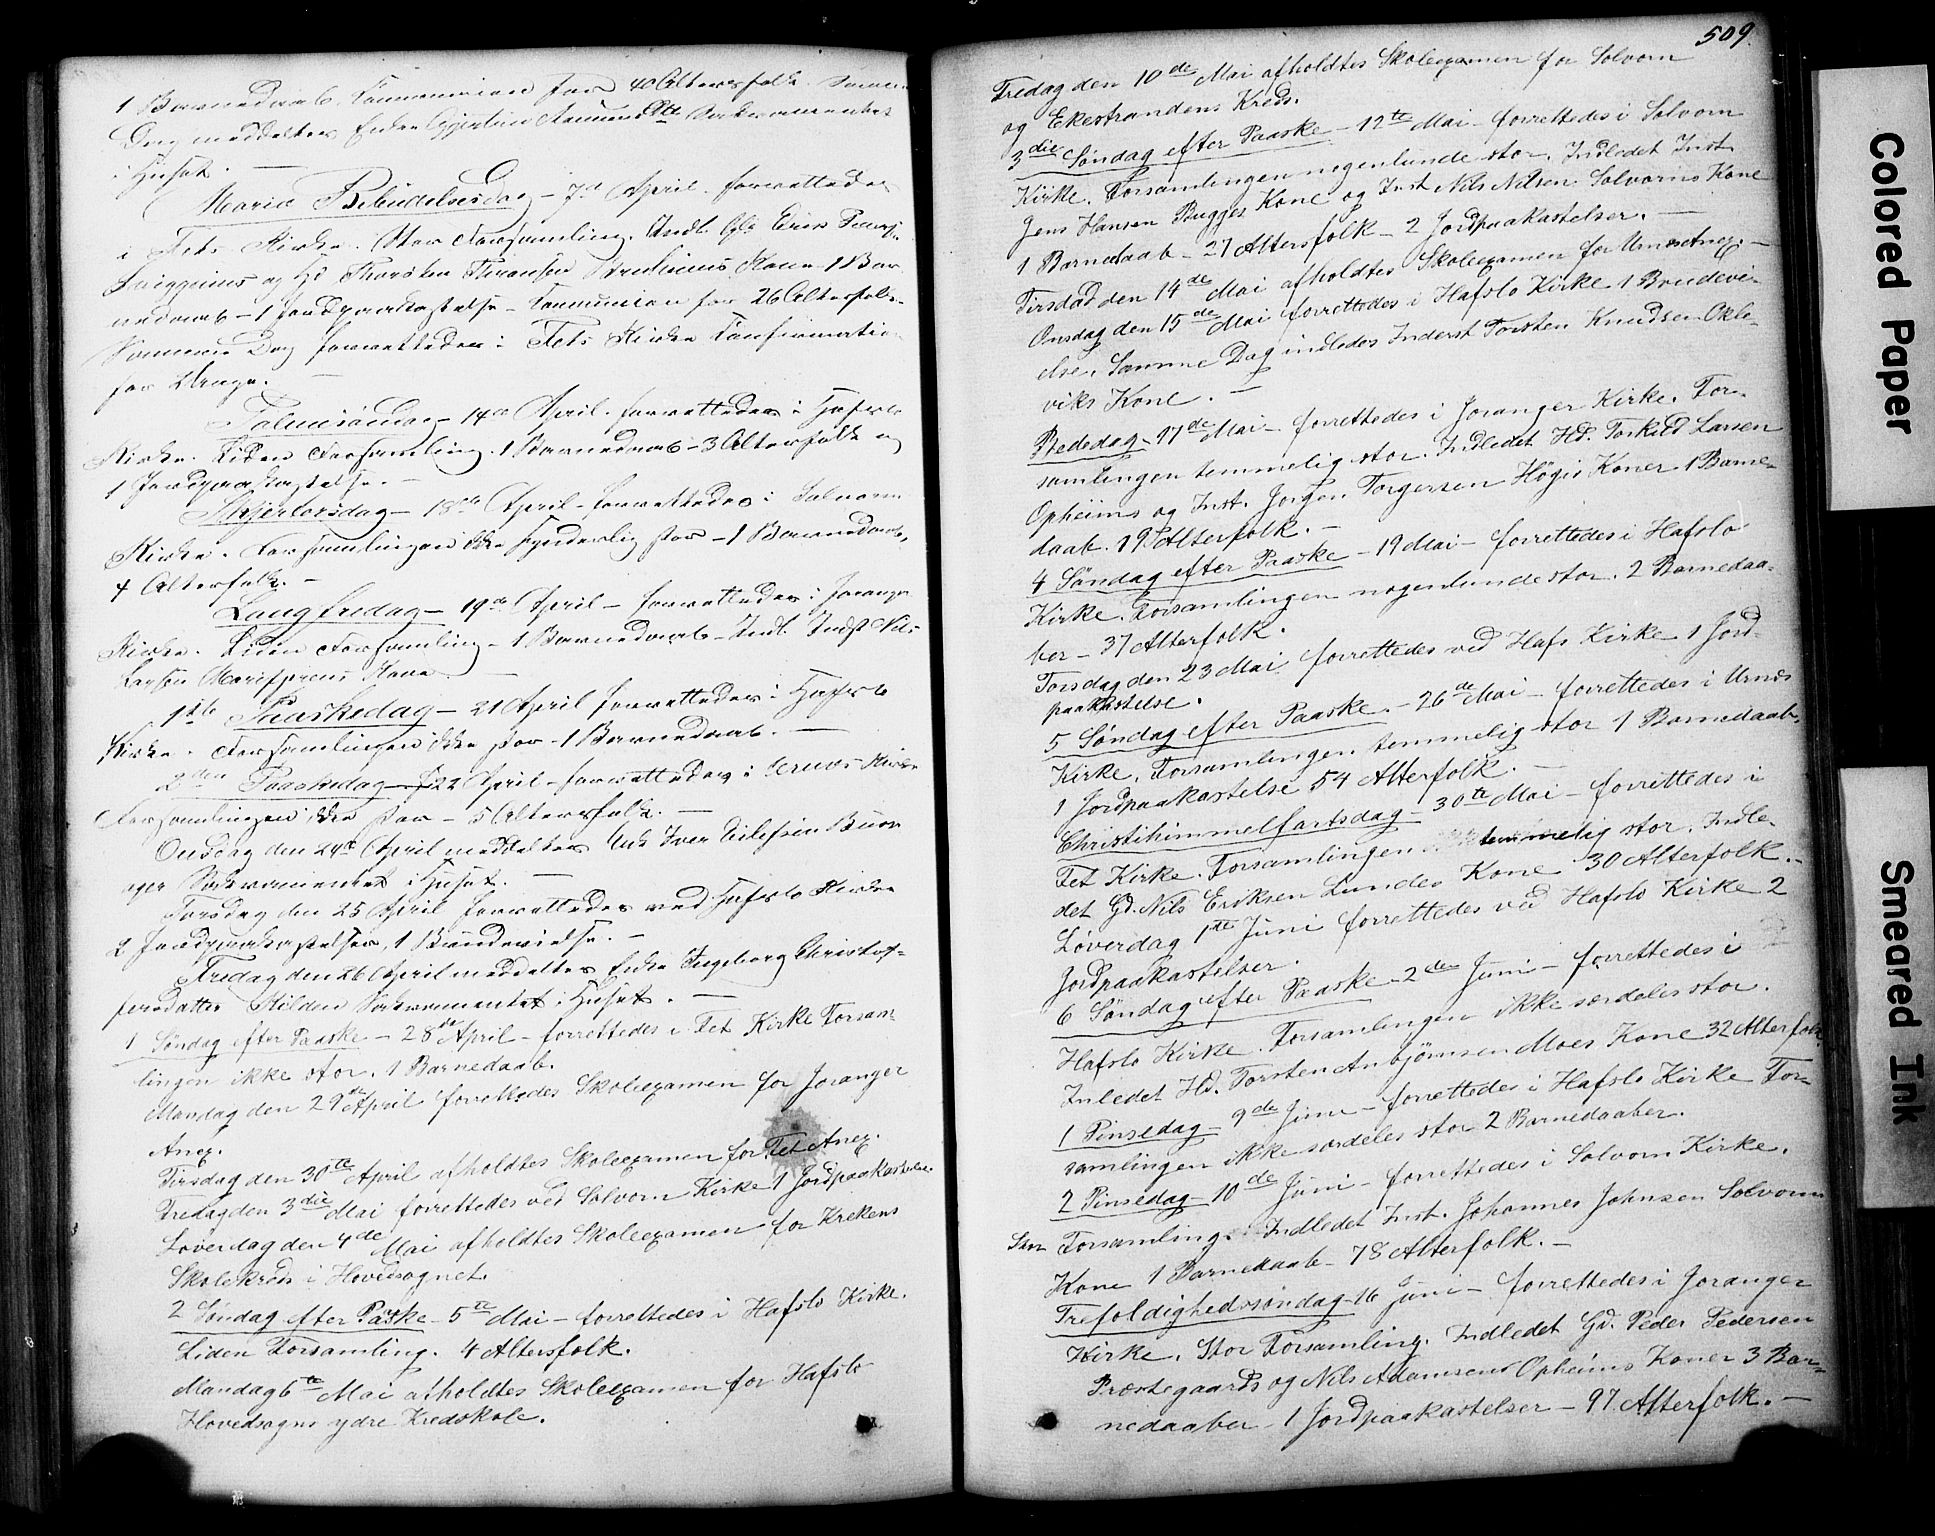 1 Barnedaab. Communion for 40 Altersfolk. Samme
Dag meddeltes Enke Gjertine Aamundsdtr Sakramentet
i Huset. —
Maria Bebudelsesdag – 7de April forrettedes
i Fets Kirke. Stor Forsamling. Indl. Erik
og Hd Thorsten Kone 1 Bar
nedaab – 1 Jordpaakastelse – Communion for 26 Altersfolk.
Samme Dag forrettedes i Fets Kirke Confirmation
for Unge. —
Palmesøndag – 14de April forrettedes i Hafslo
Kirke. Liden Forsamling. 1 Barnedaab – 3 Altersfolk og
1 Jordpaakastelse. —
Skjertorsdag – 18de April – forrettedes i Solvorn
Kirke. Forsamlingen ikke synderlig stor – 1 Barnedaab,
4 Altersfolk. –
Langfredag – 19de April – forrettedes i Joranger
Kirke. Liden Forsamling – 1 Barnedaab – Indl. Indst Nils
Larsen Marifjærens Kone. —
1ste Paaskedag – 21 April forrettedes i Hafslo
Kirke. Forsamlingen ikke stor – 1 Barnedaab. —
2den Paaskedag – 22 April – forrettedes i Urnæs Kirke
Forsamlingen ikke stor – 5 Altersfolk. —
Onsdag den 24de April meddeltes Iver
Sakramentet i Huset. —
Torsdag den 25 April forrettedes ved Hafslo Kirke
2 Jordpaakastelser, 1 Brudevielse. –
Fredag den 26 April meddeltes Enke Ingeborg Christof-
fersdatter Kilden Sakramentet i Huset. —
1 Søndag efter Paaske – 28de April – forrettedes i Fet Kirke Forsam-
lingen ikke stor. 1 Barnedaab.
Mandag den 29de April forrettedes Skoleexamen for Joranger
Anex.
Tirsdag den 30te April afholdtes Skoleexamen for Fet Anex.
Fredag den 3die Mai forrettedes ved Solvorn Kirke 1 Jordpaakastelse.
Løverdag den 4de Mai afholdtes Skoleexamen for Krekens
Skolekreds i Hovedsognet.
2 Søndag efter Paaske – 5te Mai – forrettedes i Hafslo Kirke.
Liden Forsamling. 4 Altersfolk.
Mandag 6te Mai afholdtes Skoleexamen for Hafslo
Hovedsogns ydre Kredsskole.
509.
Fredag den 10de Mai afholdtes Skoleexamen for Solvorn
og Ekestrandens Kreds.
3die Søndag efter Paaske – 12te Mai – forrettedes i Solvorn
Kirke. Forsamlingen nogenlunde stor. Indledet Inst
Jens Hansen Bugges Kone og Inst Nils Nilsen Solvorns Kone
1 Barnedaab – 27 Altersfolk – 2 Jordpaakastelser. —
Tirsdad den 14de Mai afholdtes Skoleexamen for Urnæs Anex. –
Onsdag den 15de Mai forrettedes i Hafslo Kirke 1 Brudevi-
else. Samme Dag indledes Inderst Torsten Knudsen Okle-
viks Kone. —
Bededag – 17de Mai – forrettedes i Joranger Kirke. For-
samlingen temmelig stor. Indledet Hd. Torkild Larsen
Opheims og Inst. Jørgen Torgersen Högis Koner 1 Barne-
daab. 19 Alterfolk. –
4 Søndag efter Paaske – 19 Mai – forrettedes i Hafslo
Kirke. Forsamlingen nogenlunde stor. 2 Barnedaa-
ber – 37 Alterfolk.
Torsdag den 23 Mai forrettedes ved Hafs Kirke 1 Jord-
paakastelse.
5 Søndag efter Paaske. – 26de Mai – forrettedes i Urnæs
Kirke. Forsamlingen temmelig stor 1 Barnedaab,
1 Jordpaakastelse 54 Alterfolk. –
Christihimmelfartsdag – 30te Mai – forrettedes i
Fet Kirke. Forsamlingen temmelig stor. Indle-
det Gd. Nils Eriksen Lundes Kone 30 Alterfolk. –
Løverdag 1ste Juni forrettedes ved Hafslo Kirke 2
Jordpaakastelser.
6 Søndag efter Paaske – 2den Juni – forrettedes i
Hafslo Kirke. Forsamlingen ikke særdeles stor.
Inledet Hd. Torsten Anbjörnsen Moes Kone 32 Alterfolk
1 Pinsedag – 9de Juni – forrettedes i Hafslo Kirke For-
samlingen ikke særdeles stor 2 Barnedaaber.
2 Pinsedag – 10de Juni – forrettedes i Solvorn Kirke.
Stor Forsamling. Indledet Inst. Johannes Johnsen Solvorns
Kone 1 Barnedaab – 78 Alterfolk. –
Trefoldighedssøndag – 16 Juni – forrettedes i Joranger
Kirke. Stor Forsamling. Indledet Gd. Peder Pedersen
Præstegaards og Nils Adamsens Opheims Koner 3 Bar-
nedaaber – 1 Jordpaakastelser – 97 Alterfolk. –
Colored Paper
Smeared Ink